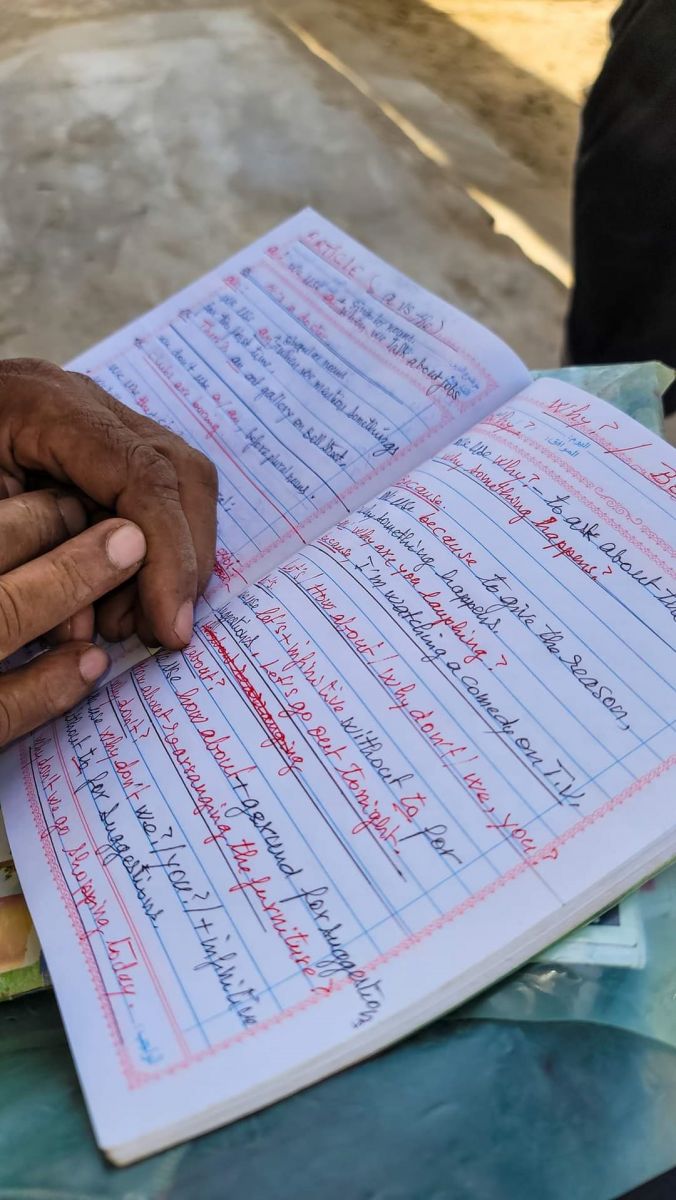 ARTICLE (a vs the)
a:
we use a singular noun
a: when we talk about jobs
He's a doctor.
we use a/an singular noun
for the first time
when we mention somethings
There's an art gallery on
we don't use a/an, before plural nouns.
Clubs are boring
Why? / Be
اليوم:
الموافق:
Why?
we use why? - to ask about the
why something happens?
because.
we use because to give the reason,
why something happens.
why are you laughing?
because, I'm watching a comedy on T.V.
Let's / How about / why don't we, you?
use let's + infinitive without to for
suggestions. Let's go out tonight.
How about?
use how about + gerund for suggestions
How about rearranging the furniture?
Why don't?
we use why don't we? / you? / + infinitive
without to for suggestions.
Why don't we go shopping today.